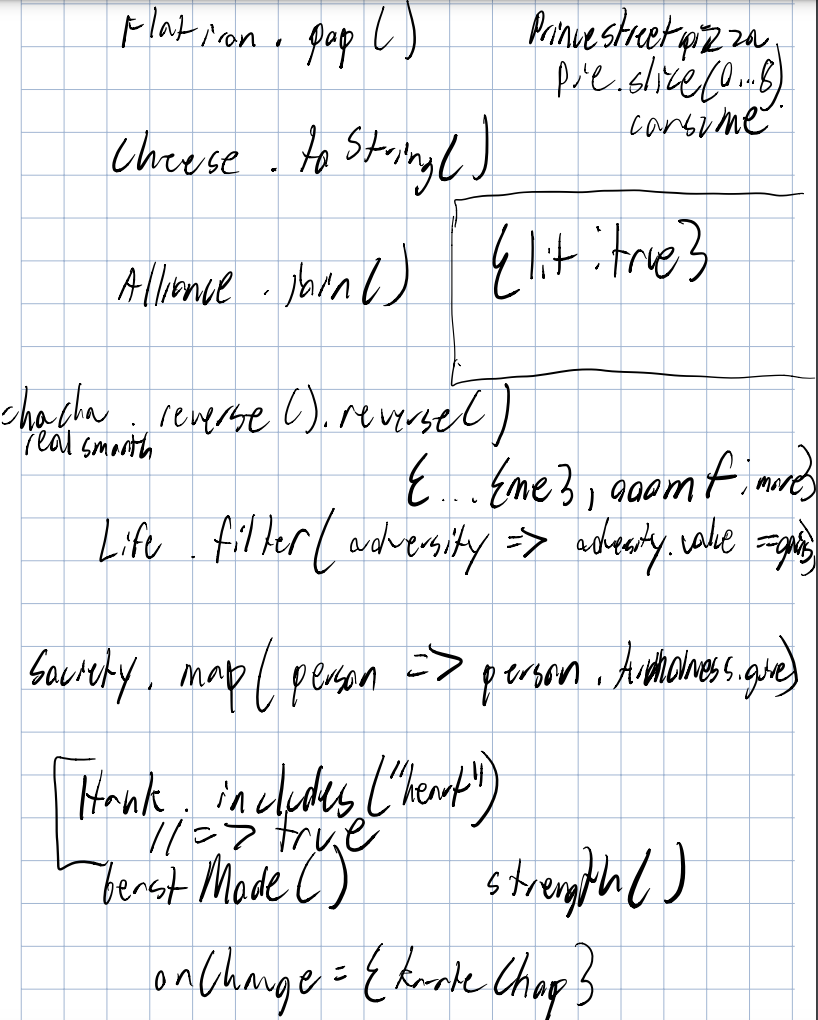 Flatiron . pop ( )
Princestreetpizza
pie.slice(0...8)
consume
Cheese . to String( )
{lit : true}
Alliance . join( )
chacha . reverse ( ).reverse( )
real smooth
{ ... {me}, ooomf : more}
Life . filter( adversity => adversity. value ==
Society. map( person => person .
Hank . includes ("heart")
// => true
beast Made ( )
strength( )
onChange = {karate Chop}